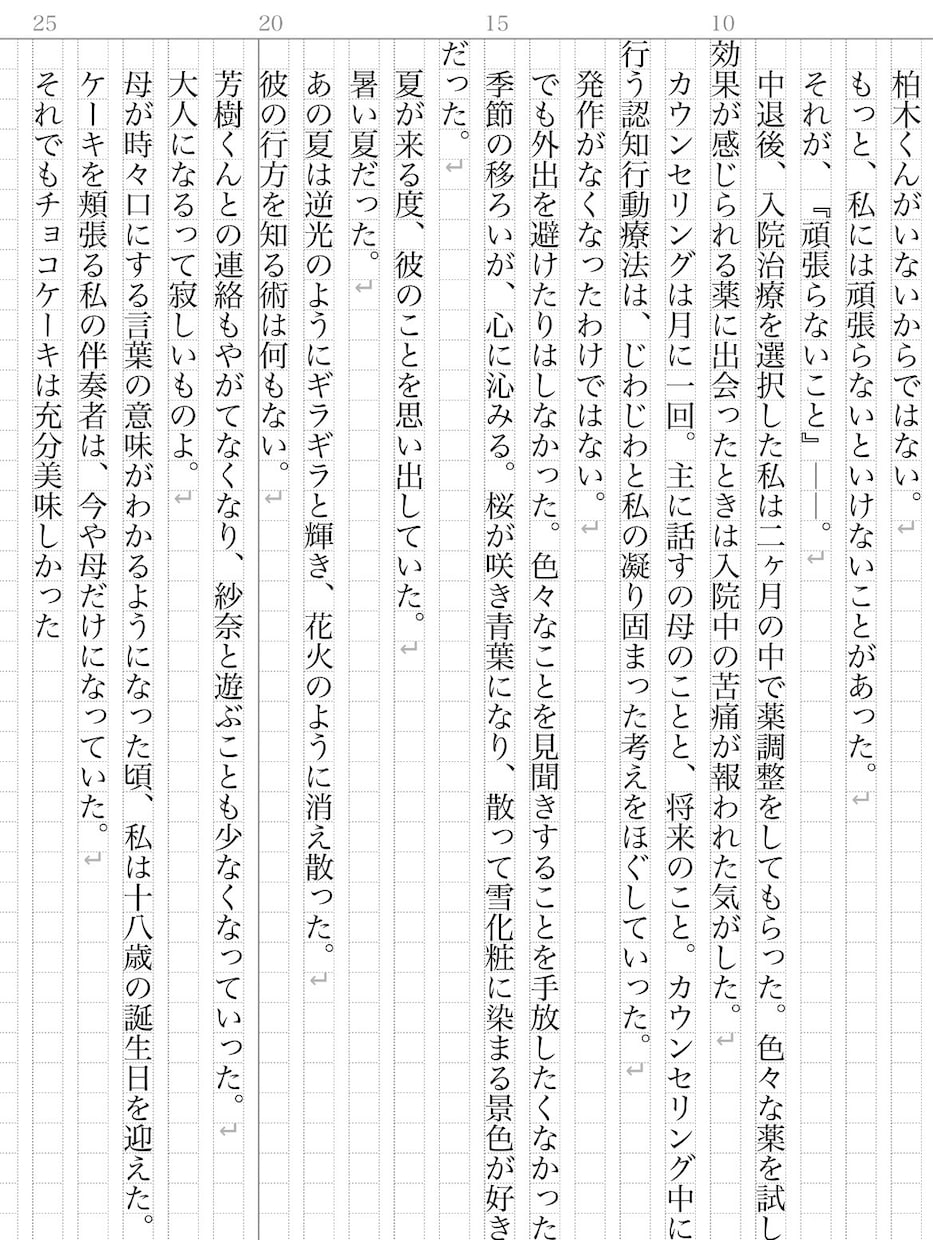 柏木くんがいないからではない。
もっと、私には頑張らないといけないことがあった。
それが、『頑張らないこと』——。
中退後、入院治療を選択した私は二ヶ月の中で薬調整をしてもらった。色々な薬を試し
効果が感じられる薬に出会ったときは入院中の苦痛が報われた気がした。
カウンセリングは月に一回。主に話すの母のことと、将来のこと。カウンセリング中に
行う認知行動療法は、じわじわと私の凝り固まった考えをほぐしていった。
発作がなくなったわけではない。
でも外出を避けたりはしなかった。色々なことを見聞きすることを手放したくなかった
季節の移ろいが、心に沁みる。桜が咲き青葉になり、散って雪化粧に染まる景色が好き
だった。
夏が来る度、彼のことを思い出していた。
暑い夏だった。
あの夏は逆光のようにギラギラと輝き、花火のように消え散った。
彼の行方を知る術は何もない。
芳樹くんとの連絡もやがてなくなり、紗奈と遊ぶことも少なくなっていった。
大人になるって寂しいものよ。
母が時々口にする言葉の意味がわかるようになった頃、私は十八歳の誕生日を迎えた。
ケーキを頬張る私の伴奏者は、今や母だけになっていた。
それでもチョコケーキは充分美味しかった
10
15
20
25